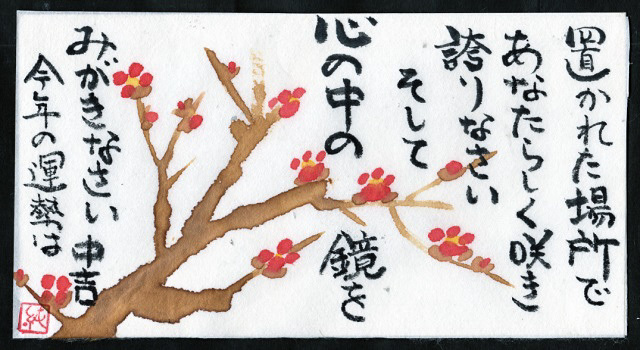 置かれた場所で
あなたらしく咲き
誇りなさい
そして
心の中の
鏡を
みがきなさい
今年の運勢は
中吉
純